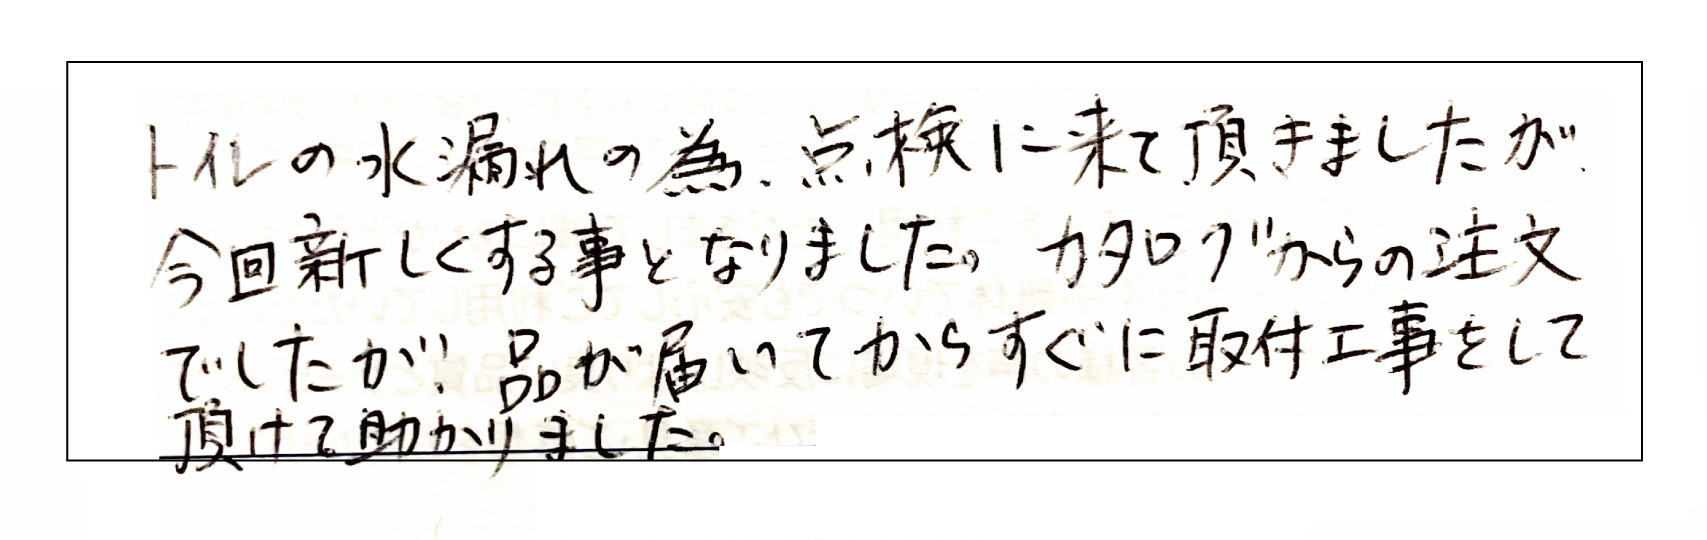 トイレの水漏れの為、点検に来て頂きましたが、
今回新しくする事となりました。カタログからの注文
でしたが、品が届いてからすぐに取付工事をして
頂けて助かりました。